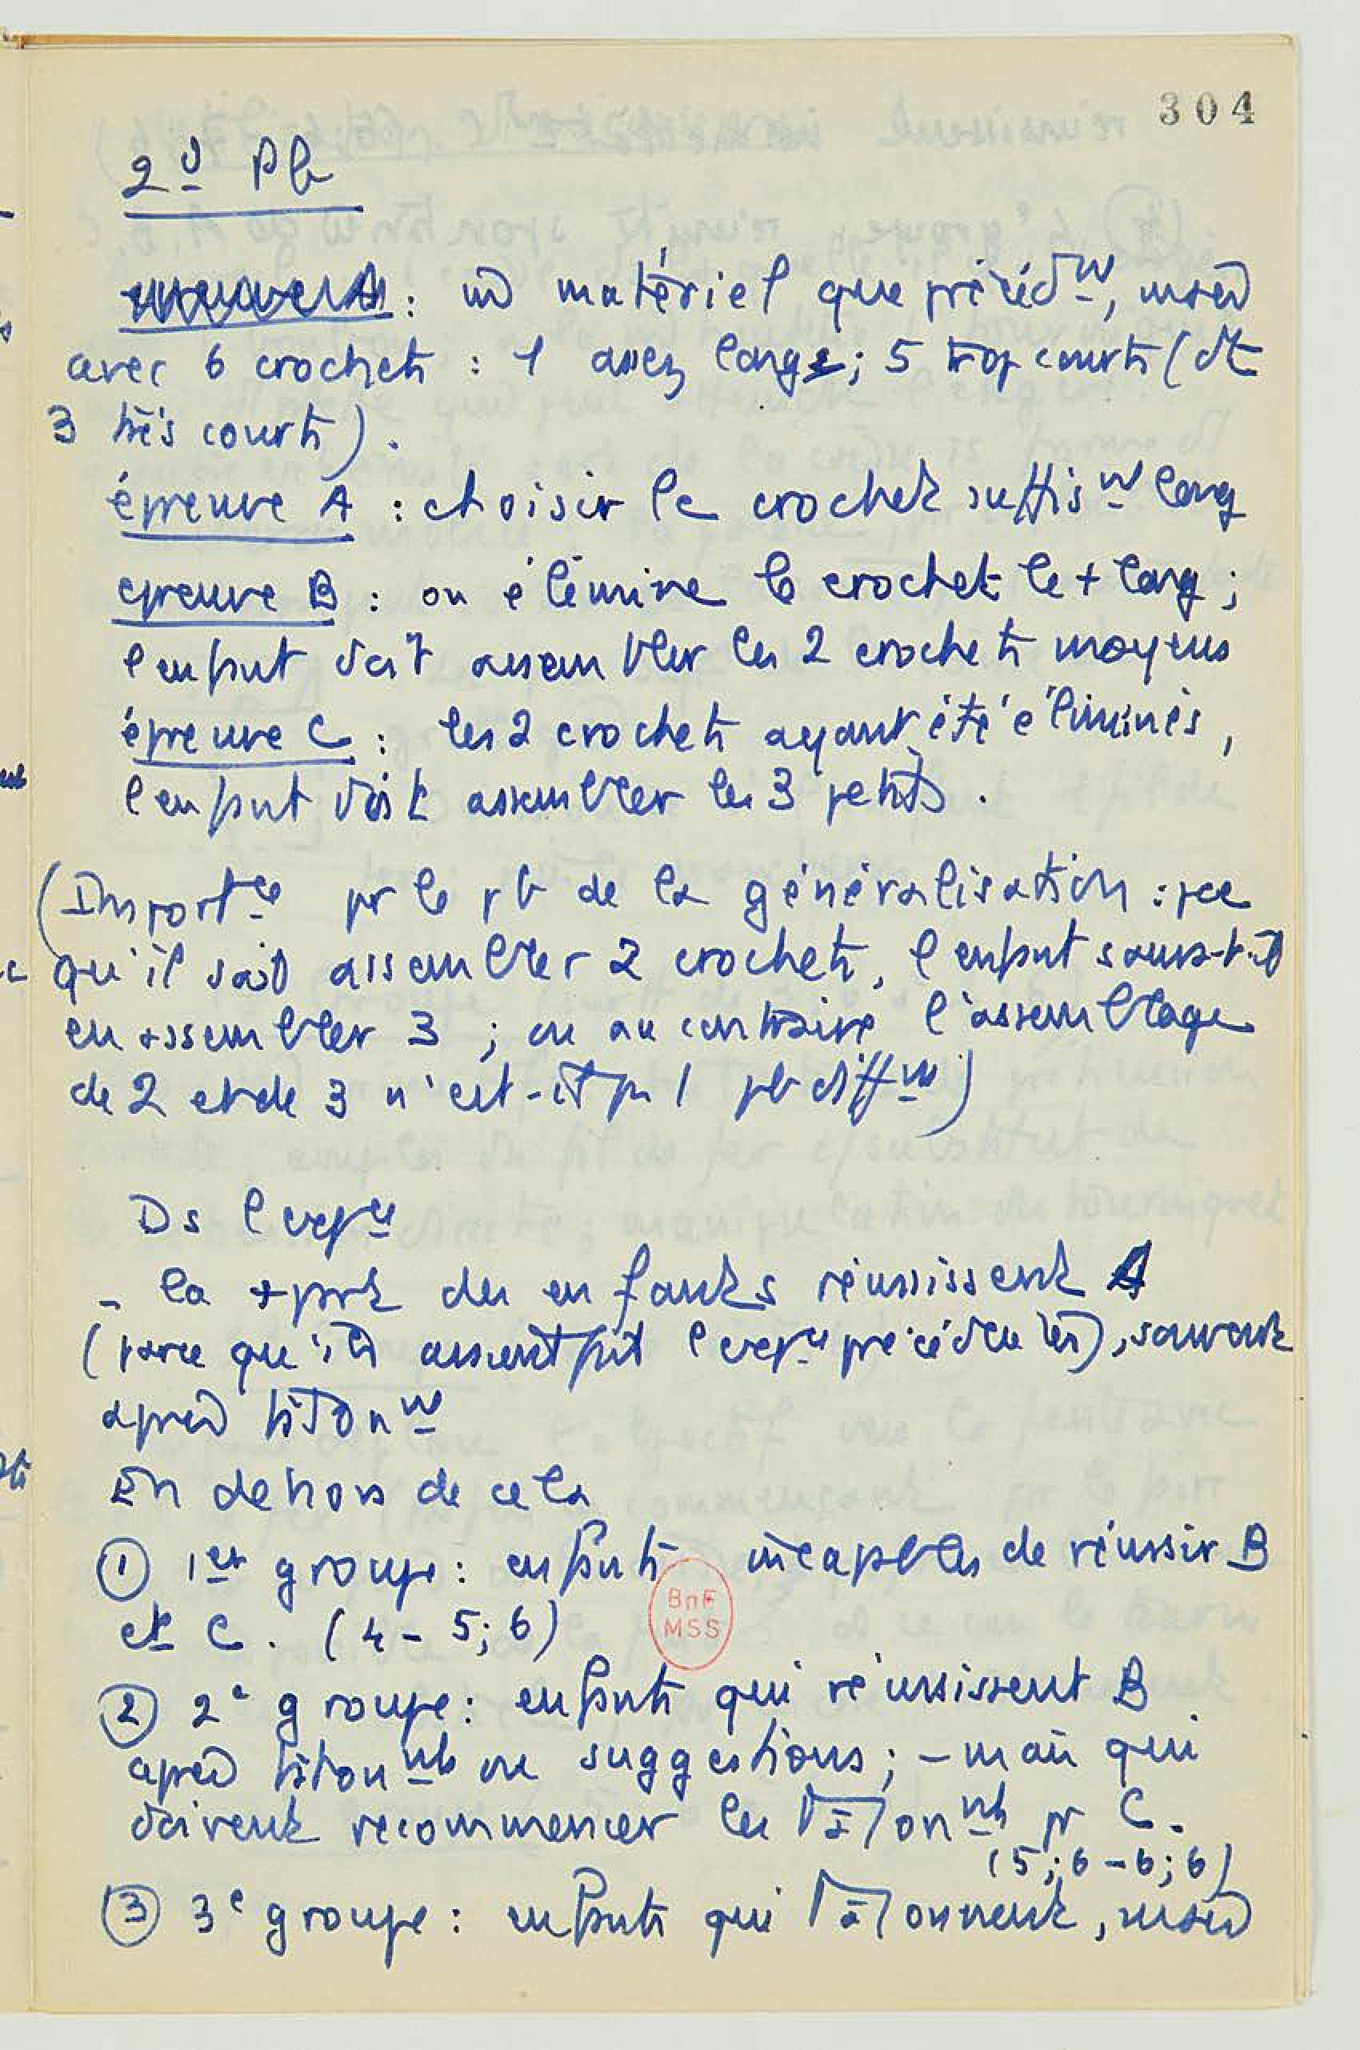 304
2d Pb
: m̄ matériel que précédnt, mais
avec 6 crochets : 1 assez long ; 5 trop courts (dt
3 très courts).
épreuve A : choisir le crochet suffisnt long
epreuve B : on élimine le crochet le + long ;
l'enfant doit assembler les 2 crochets moyens
épreuve C : les 2 crochets ayant été éliminés,
l'enfant doit assembler les 3 petits.
(Importce pr le pb de la généralisation : pce
qu'il sait assembler 2 crochets, l'enfant saura-t-il
en assembler 3 ; ou au contraire l'assemblage
de 2 et de 3 n'est-it pr 1 pb diffnt)
Ds l'expce
- la + part des enfants réussissent A
(parce qu'ils avaient fait l'expce précédente), souvent
après tâtonnt
En dehors de cela
① 1er groupe : enfants incapables de réussir B
et C. (4 - 5;6)
② 2e groupe : enfants qui réussissent B
après tâtonnts ou suggestions ; - mais qui
doivent recommencer les tâtonnts pr C.
(5;6 - 6;6)
③ 3e groupe : enfants qui tâtonnent, mais
BnF
MSS